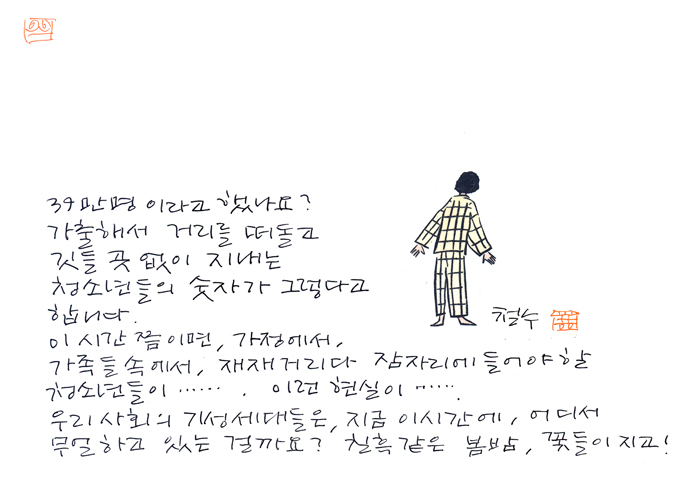 39만명이라고 했나요?
가출해서 거리를 떠돌고
깃들 곳 없이 지내는
청소년들의 숫자가 그렇다고
합니다.
이 시간쯤이면, 가정에서,
가족들속에서, 재재거리다 잠자리에들어야할
청소년들이 ‥‥‥. 이런 현실이 ‥‥‥.
우리사회의 기성세대들은, 지금 이시간에, 어디서
무얼하고 있는 걸까요? 칠흑같은 봄밤, 꽃들이지고!
철수